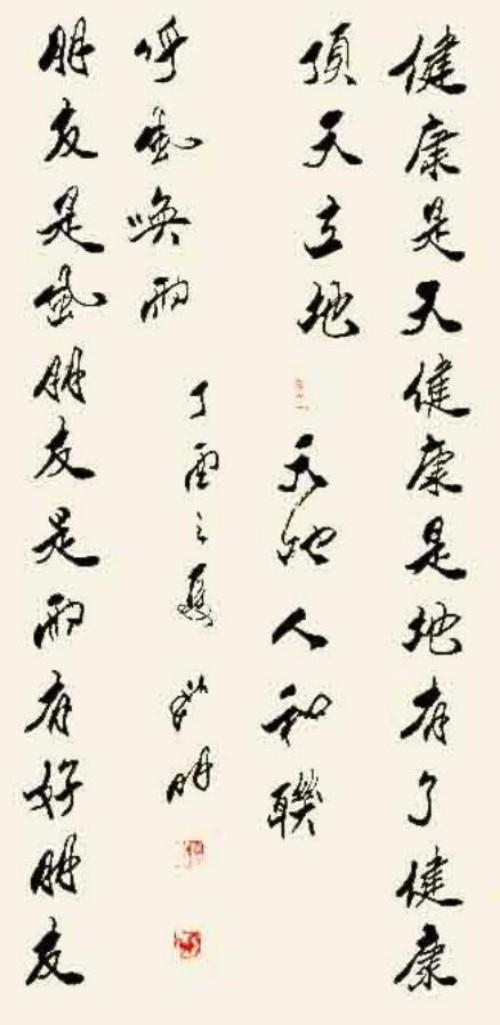 健康是天健康是地有了健康
頂天立地
天地人和聯
朋友是風朋友是雨有好朋友
呼風喚雨
丁酉之夏 明